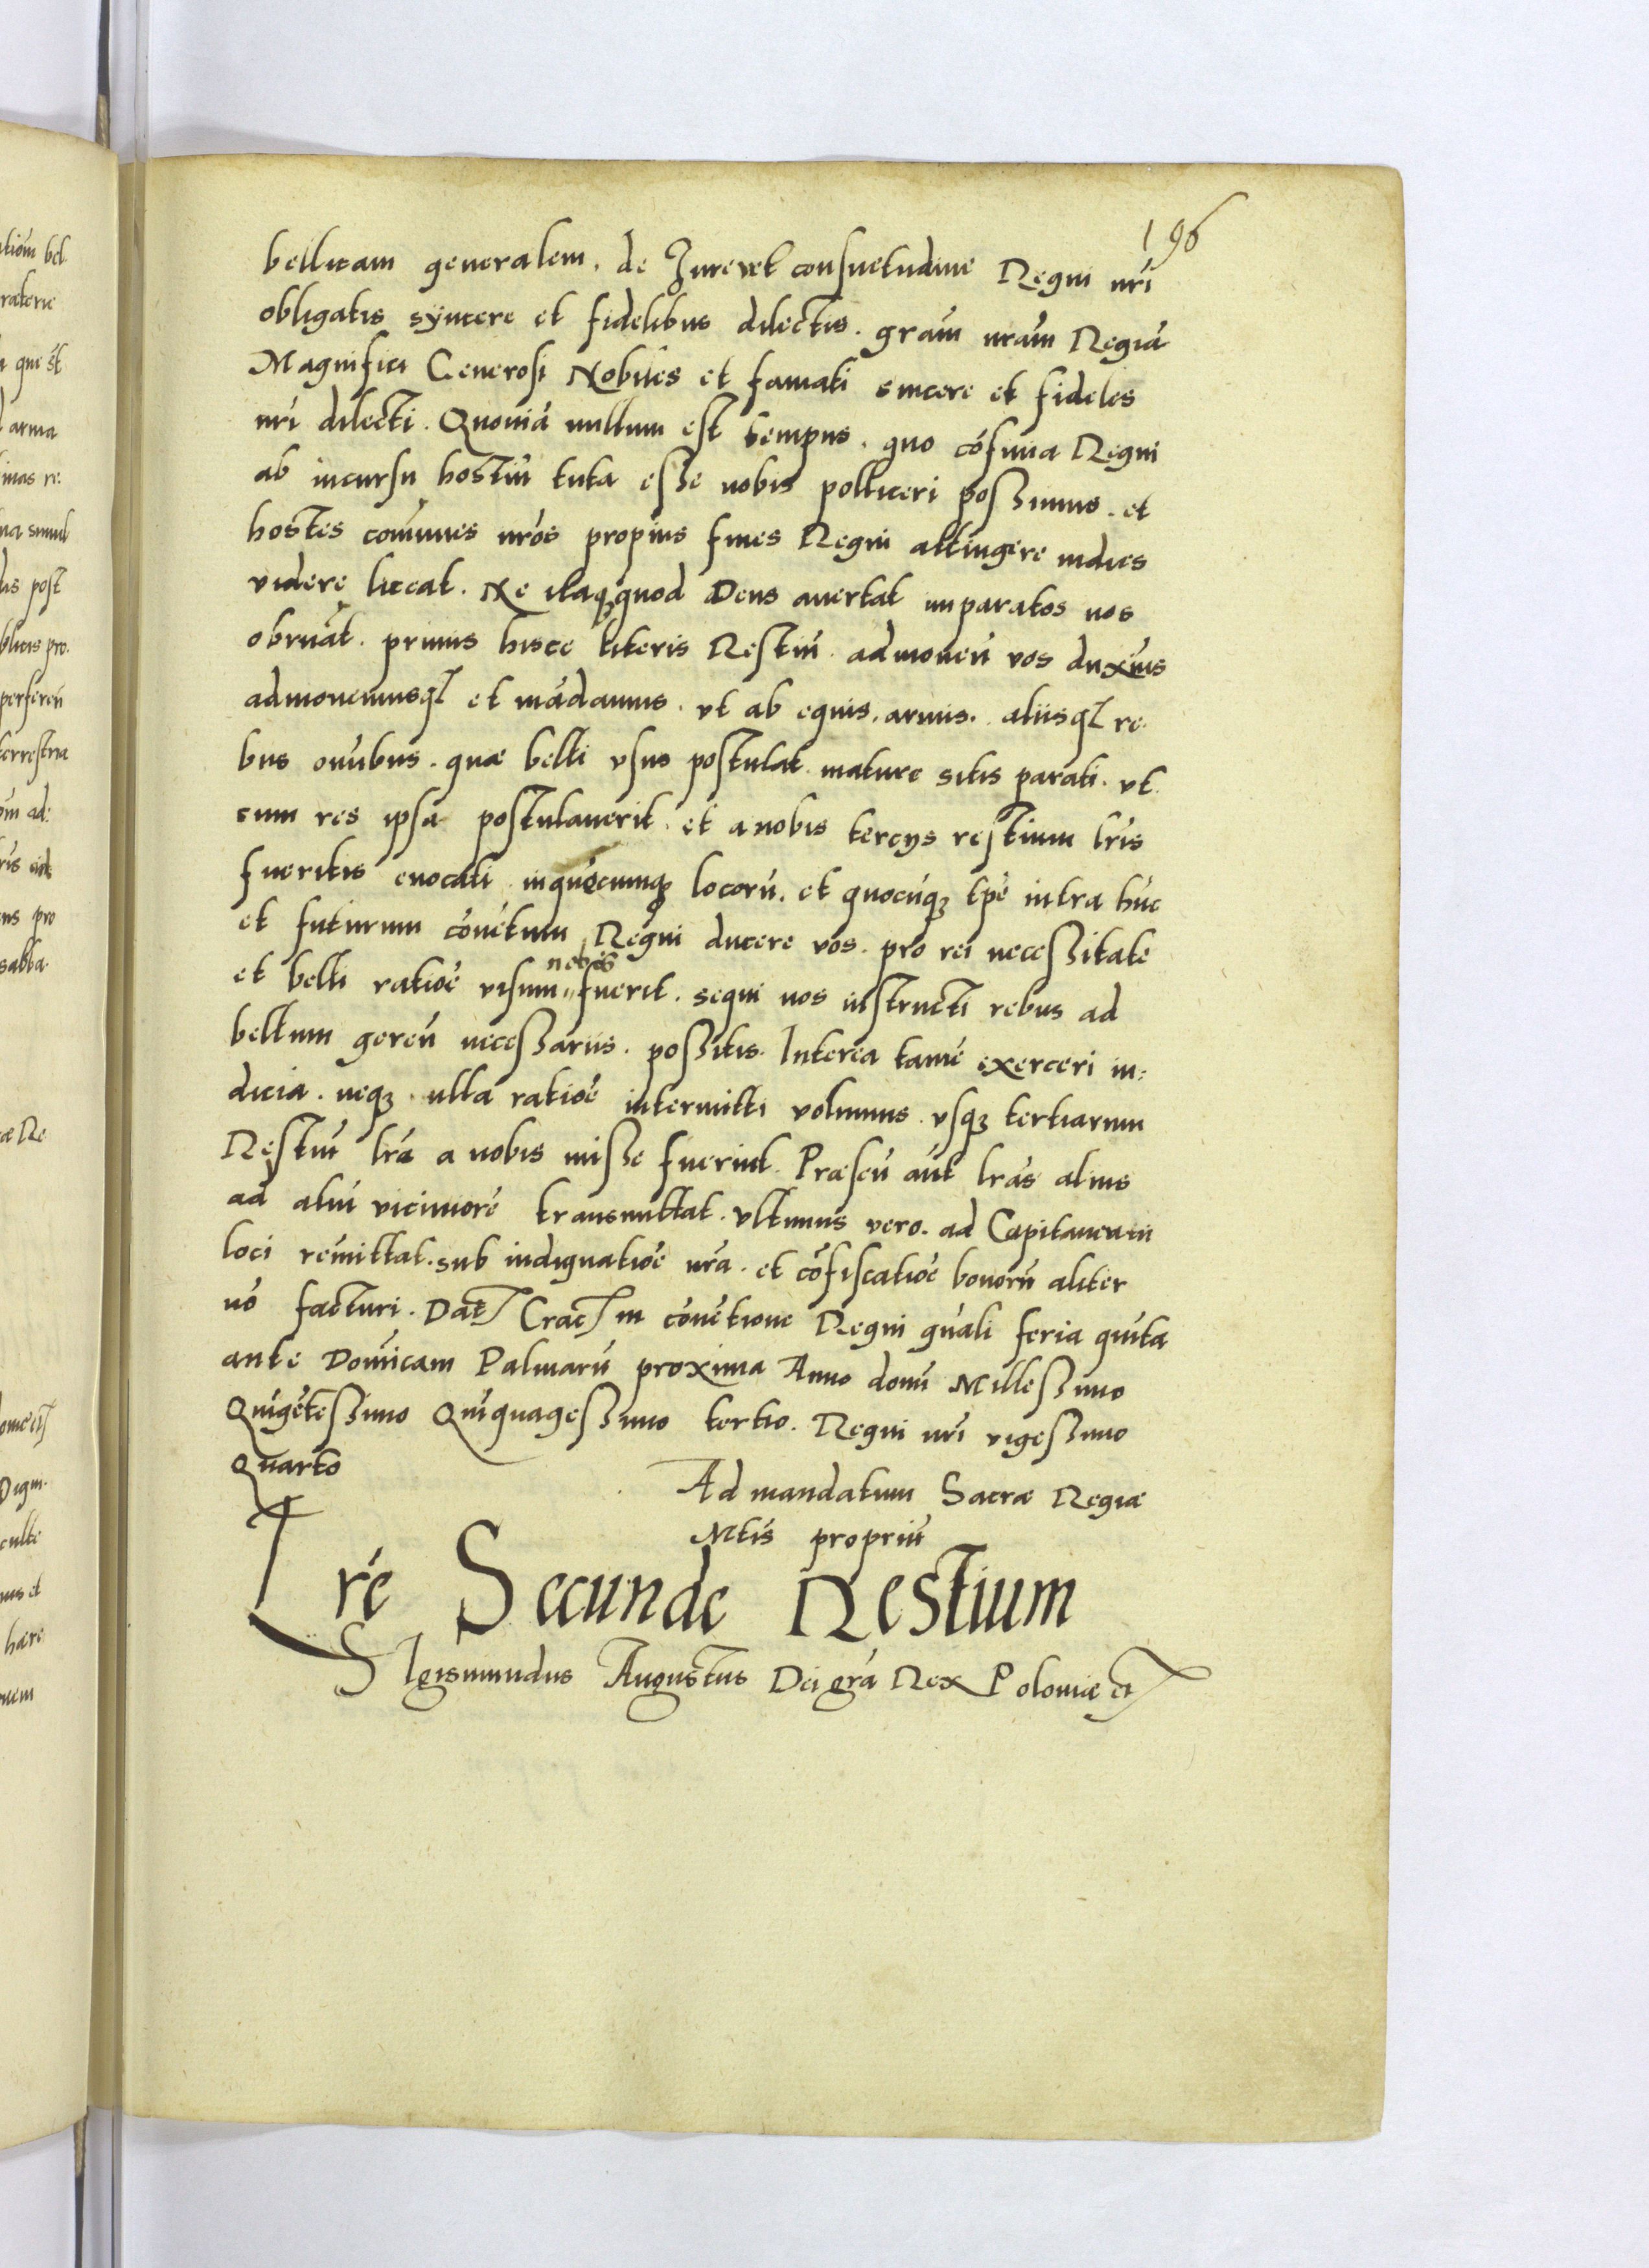 196
bellicam generalem. de Jure vel consuetudine Regni nrī
obligatis syncere et fidelibus dilectis. grãm nrãm Regiã
Magnifici Generosi Nobiles et famati sincere et fideles
nrī dilecti. Quoniã nullum est tempus. quo cõfinia Regni
ab incursu hostiũ tuta esse nobis polliceri possimus. et
hostes comũnes nrõs propius fines Regni attingere indies
videre liceat. Ne itaqʒ quod Deus auertat imparatos nos
obruãt. primis hisce literis Restiũ. admoneñ vos duxim̃us
admonemusqʒ et mãdamus. vt ab equis. armis. aliisqʒ re-
bus om̃ibus. quæ belli vsus postulat. mature sitis parati. vt
cum res ipsa postulauerit. et a nobis tercys restium lrĩs
fueritis euocati. in quõcumqʒ locorũ. et quocũqʒ tp̃e intra hũc
et futurum cõuẽtum Regni ducere vos. pro rei necessitate
et belli ratiõe visum nobis fuerit. sequi nos instructi rebus ad
bellum gereñ necessariis. possitis. Interea tamẽ exerceri iu-
dicia. neqʒ. vlla ratiõe intermitti volumus. vsqʒ tertiarum
Restiũ lrã a nobis misse fuerint. Præseñ aũt lrãs alius
ad aliũ viciniorẽ transmittat. vltimus vero. ad Capitaneum
loci rẽmittat. sub indignatiõe nrã. et cõfiscatiõe bonorũ aliter
nõ facturi. Dat Crac in cõuẽtione Regni gñali feria quĩta
ante Domĩcam Palmarũ proxima Anno domĩ Millessimo
Quĩgẽtessimo Quĩquagessimo tertio. Regni nrĩ vigessimo
Quarto
Ad mandatum Sacræ Regiæ
Mtĩs propriũ
Lrẽ Secunde Restium
Sigismundus Augustus Dei grã Rex Poloniæ etc